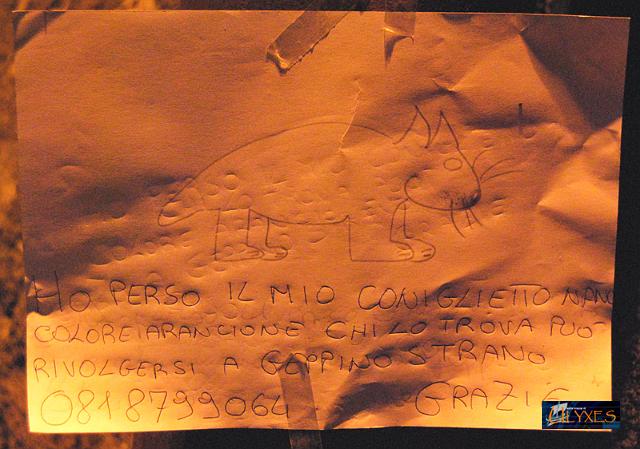 HO PERSO IL MIO CONIGLIETTO NANO
COLORE ARANCIONE CHI LO TROVA PUO'
RIVOLGERSI A GEPPINO STRANO
0818799064 GRAZIE
ULYXES